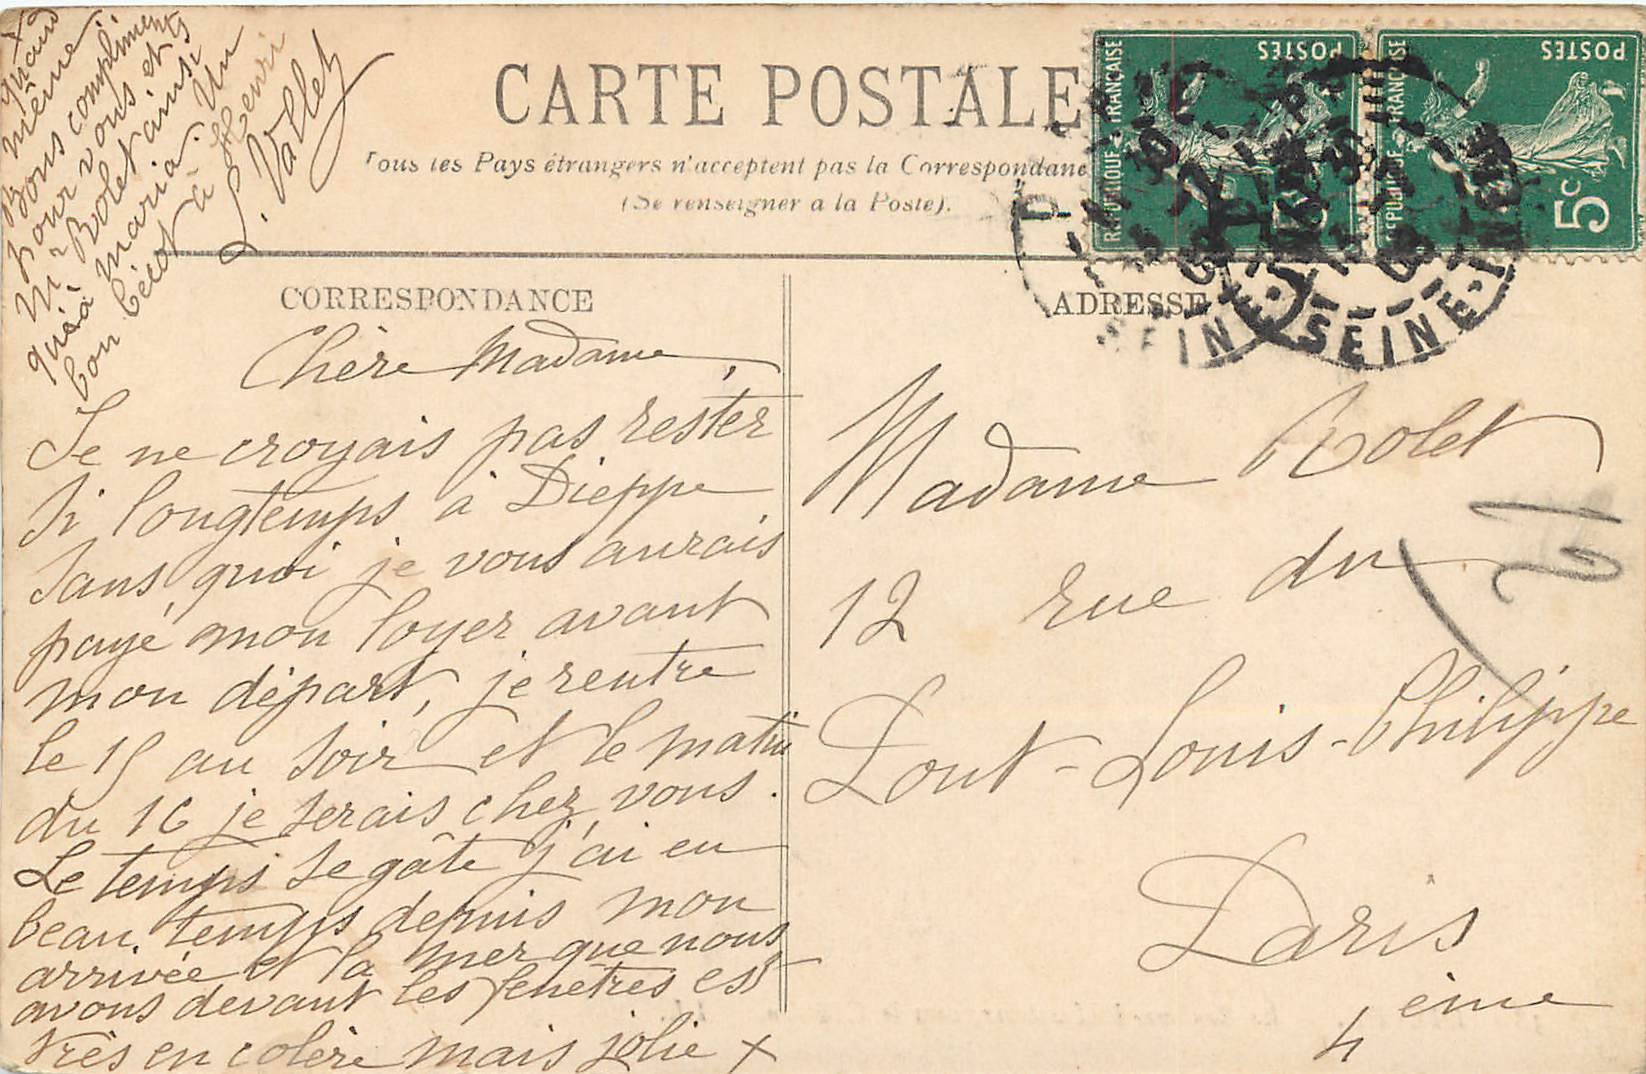 CARTE POSTALE
Tous les Pays étrangers n'acceptent pas la Correspondance
(Se renseigner à la Poste).
RÉPUBLIQUE FRANÇAISE
POSTES
5c
RÉPUBLIQUE FRANÇAISE
POSTES
5c
SEINE-INF
SEINE-INF
CORRESPONDANCE
Chère Madame,
Je ne croyais pas rester
si longtemps à Dieppe
sans quoi je vous aurais
payé mon loyer avant
mon départ, je rentre
le 15 au soir et le matin
du 16 je serais chez vous.
Le temps se gâte j'ai eu
beau temps depuis mon
arrivée et la mer que nous
avons devant les fenêtres est
très en colère mais jolie x
x quand
même
Bons compliments
pour vous et
Mr Rolet ainsi
qu'à Maria. Un
bon bécot à Henri
L. Vallet
ADRESSE
Madame Rolet
12 rue du
Pont-Louis-Philippe
Paris
4 ème